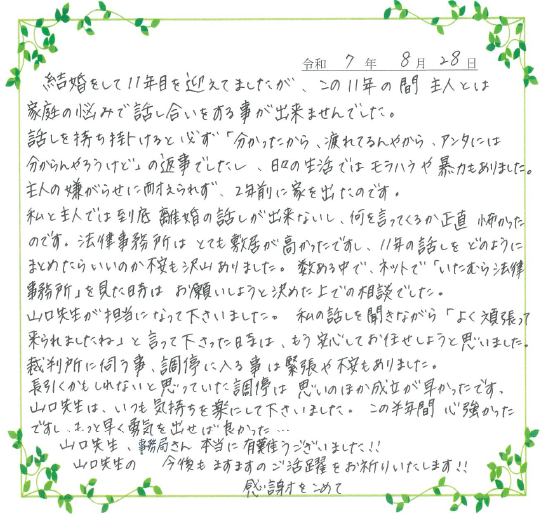 令和 7 年 8 月 28 日
結婚をして11年目を迎えてましたが、この11年の間 主人とは
家庭の悩みで話し合いをする事が出来ませんでした。
話しを持ち掛けると必ず「分かったから、疲れてるんやから、アンタには
分からんやろうけど」の返事でしたし、日々の生活ではモラハラや暴力もありました。
主人の嫌がらせに耐えられず、2年前に家を出たのです。
私と主人では到底 離婚の話しが出来ないし、何を言ってくるか正直 怖かった
のです。法律事務所は とても敷居が高かったですし、11年の話しを どのように
まとめたらいいのか不安も沢山ありました。数ある中で、ネットで「いたむら法律
事務所」を見た時は お願いしようと決めた上での相談でした。
山口先生が担当になって下さいました。 私の話しを聞きながら「よく頑張って
来られましたね」と言って下さった時は、もう安心してお任せしようと思いました。
裁判所に伺う事、調停に入る事は緊張や不安もありました。
長引くかもしれないと思っていた調停は 思いのほか成立が早かったです、
山口先生は、いつも気持ちを楽にして下さいました。この半年間 心強かった
ですし、もっと早く勇気を出せば良かった…
山口先生、事務局さん 本当に有難うございました!!
山口先生の 今後もますますのご活躍をお祈りいたします!!
感謝をこめて